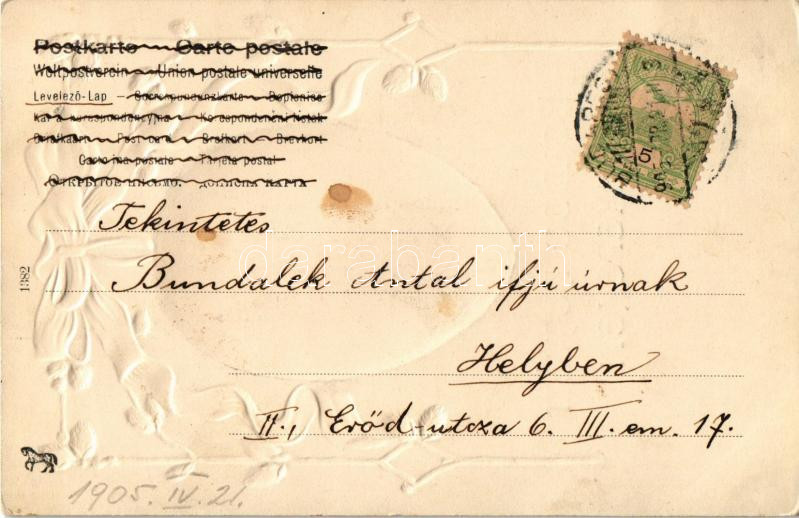 Postkarte — Carte postale
Weltpostverein — Union postale universelle
Levelező-Lap — Correspondenzkarte — Dopisnice
Karta korespondencyjna — Korespondenční lístek
Briefkaart — Post card — Brefkort — Brevkort
Cartolina postale — Tarjeta postal
5
Tekintetes
Bundalek Antal ifjú úrnak
Helyben
II., Erőd-utcza 6. III. em. 17.
1382
1905. IV. 21.
darabanth.com